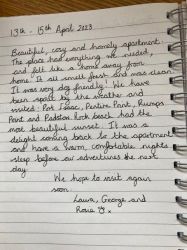 13th - 15th April 2023
Beautiful, cosy and homely apartment.
The place had everything we needed,
and felt like a home away from
home. It all smelt fresh and was clean.
It was very dog friendly! We have
been spoilt by the weather and
visited: Port Isaac, Pentire Point, Rumps
Point and Padstow. Rock beach had the
most beautiful sunset. It was a
delight coming back to the apartment
and have a warm, comfortable nights
sleep before our adventures the next
day.
We hope to visit again
soon
Laura, George and
Rosie x